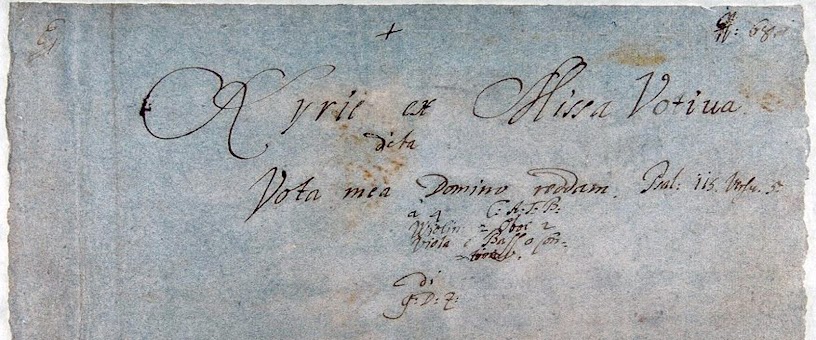 N: 68.
Kyrie ex Missa Votiva
dicta
Vota mea Domino reddam. Psal: 115. Vers. 5.
a 4 C: A: T: B:
Violin 2 Oboi 2
Viola e Basso Con-
tinuo.
di
G: D: Z: